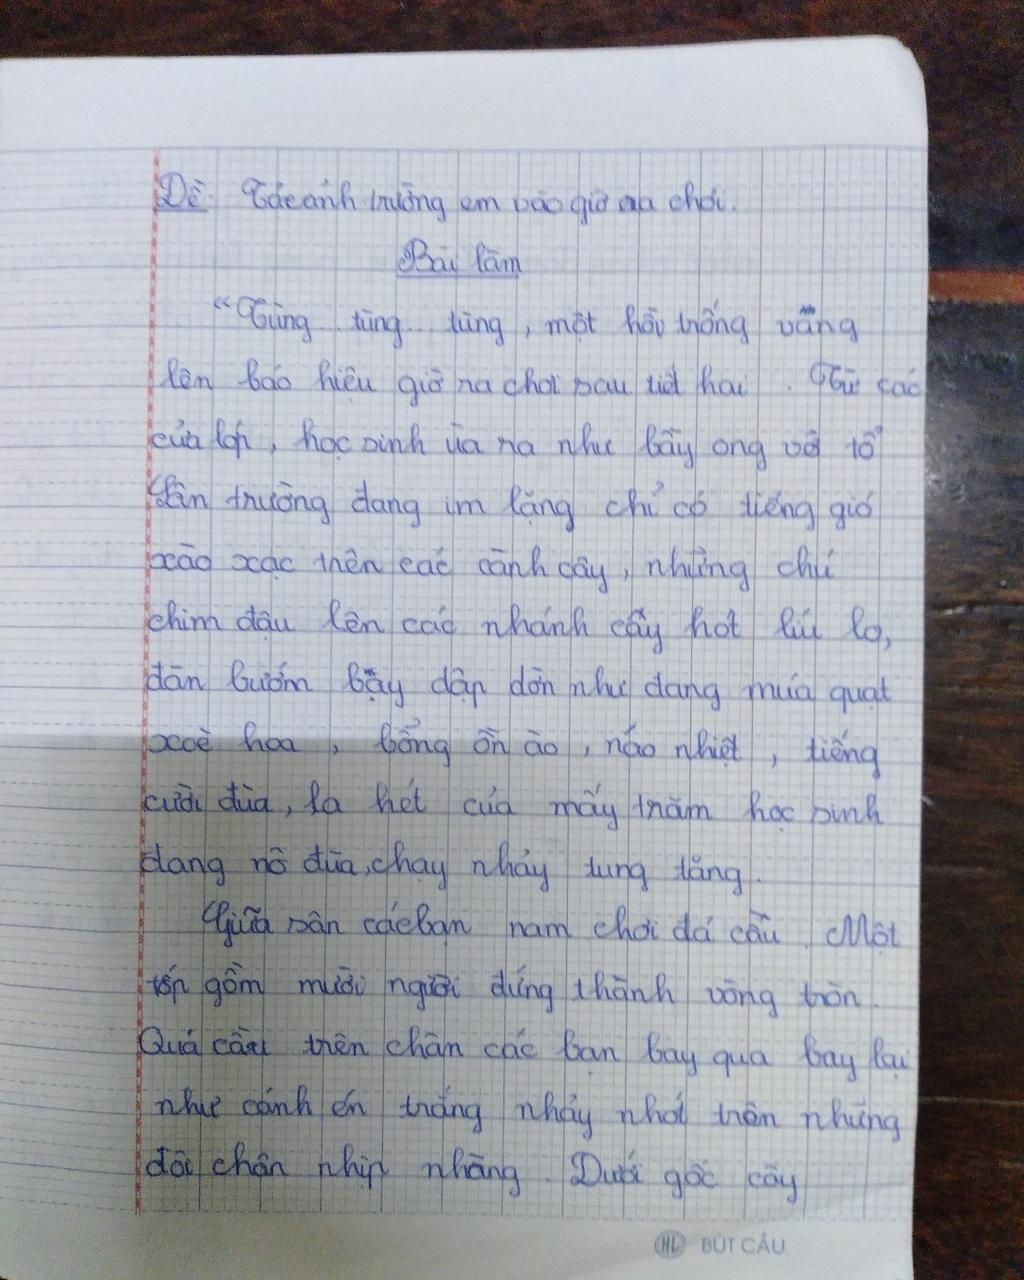 Đề: Tác ảnh trường em vào giờ ra chơi.
Bài làm
"Tùng tùng tùng, một hồi trống vâng
lên báo hiệu giờ ra chơi sau tiết hai. Từ các
cửa lớp, học sinh ùa ra như bầy ong vỡ tổ
Sân trường đang im lặng chỉ có tiếng gió
xào xạc trên các cành cây, những chú
chim đậu lên các nhánh cây hót líu lo,
đàn bướm bay dập dờn như đang múa quạt
xoè hoa, bổng ồn ào, náo nhiệt, tiếng
cười đùa, la hét của mấy trăm học sinh
đang nô đùa, chạy nhảy tung tăng.
Giữa sân các bạn nam chơi đá cầu. Một
tốp gồm mười người đứng thành vòng tròn.
Quả cầu trên chân các bạn bay qua bay lại
như cánh én trắng nhảy nhót trên những
đôi chân nhịp nhàng. Dưới gốc cây
HL BÚT CẦU